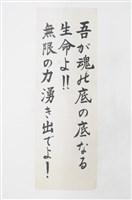 吾が魂の底の底なる
生命よ!!
無限の力湧き出でよ!